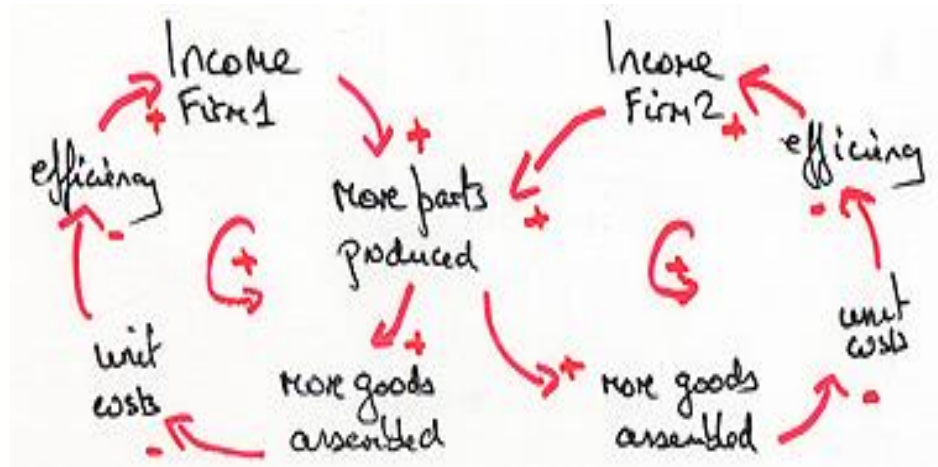 Income
Firm1
+
efficiency
-
+
+
More parts
produced
+
unit
costs
-
More goods
assembled
Income
Firm2
+
efficiency
-
+
+
+
More goods
assembled
unit
costs
-